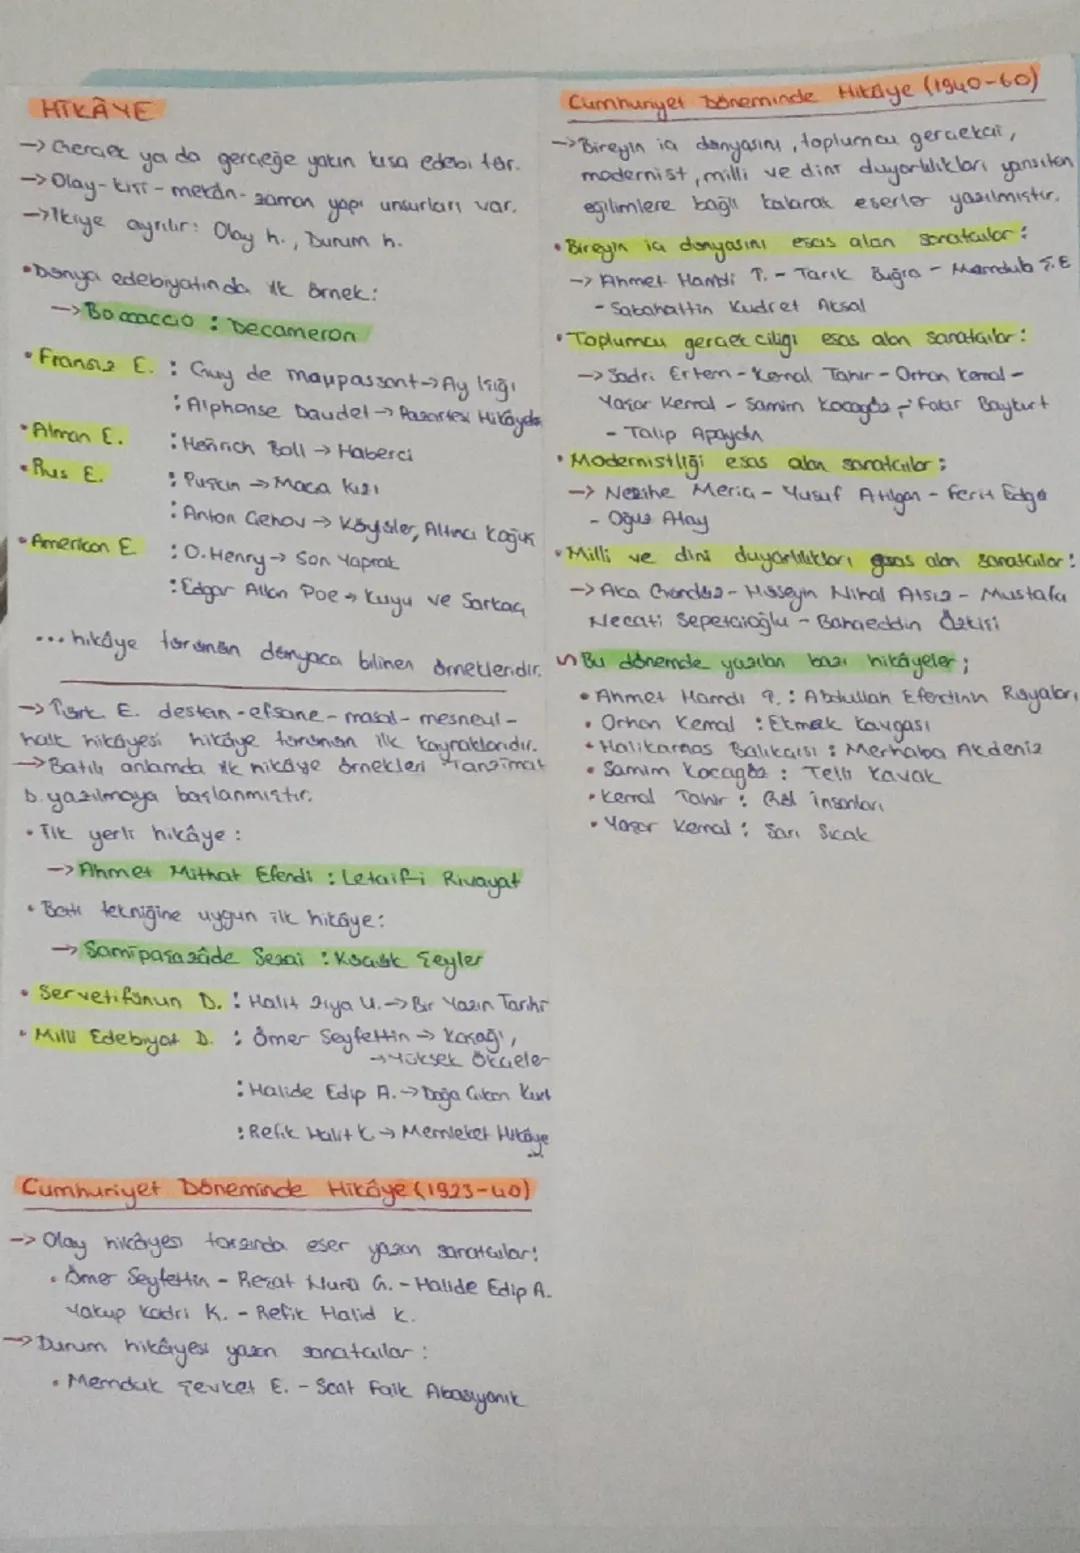 HİKÂYE
→ Gerçek ya da gerçeğe yakın kısa edebi tür.
→ Olay-kişi-mekân-zaman yapı unsurları var.
→ İkiye ayrılır: Olay h., Durum h.
• Dünya edebiyatında ilk örnek:
→ Boccaccio : Decameron
• Fransız E. : Guy de maupassant → Ay Işığı
: Alphonse Daudet → Pazartesi Hikâyele
• Alman E. : Heinrich Boll → Haberci
• Rus E. : Puşkin → Maça Kızı
: Anton Çehov → Köylüler, Altıncı Koğuş
• Amerikan E. : O. Henry → Son Yaprak
: Edgar Allan Poe → Kuyu ve Sarkaç
... hikâye türünün dünyaca bilinen örnekleridir.
→ Türk E. destan-efsane-masal-mesnevi-
halk hikâyesi hikâye türünün ilk kaynaklarıdır.
→ Batılı anlamda ilk hikâye örnekleri Tanzimat
D. yazılmaya başlanmıştır.
• İlk yerli hikâye :
→ Ahmet Mithat Efendi : Letaif-i Rivayat
• Batı tekniğine uygun ilk hikâye:
→ Samipaşazâde Sezai : Küçük Şeyler
• Servetifünun D. : Halit Ziya U. → Bir Yazın Tarihi
• Milli Edebiyat D. : Ömer Seyfettin → Kaşağı,
→ Yüksek Ökçeler
: Halide Edip A. → Dağa Çıkan Kurt
: Refik Halit K. → Memleket Hikâye
Cumhuriyet Döneminde Hikâye (1923-40)
→ Olay hikâyesi tarzında eser yazan sanatçılar:
• Ömer Seyfettin - Reşat Nuri G. - Halide Edip A.
Yakup Kadri K. - Refik Halid K.
→ Durum hikâyesi yazan sanatçılar :
• Memduk Şevket E. - Sait Faik Abasıyanık
Cumhuriyet Döneminde Hikâye (1940-60)
→ Bireyin iç dünyasını, toplumcu gerçekçi,
modernist, milli ve dini duyarlılıkları yansıtan
eğilimlere bağlı kalarak eserler yazılmıştır.
• Bireyin iç dünyasını esas alan sanatçılar :
→ Ahmet Hamdi T. - Tarık Buğra - Mamdub Ş.E
- Sabahattin Kudret Aksal
• Toplumcu gerçekçiliği esas alan sanatçılar :
→ Sadri Ertem - Kemal Tahir - Orhan Kemal -
Yaşar Kemal - Samim Kocagöz - Fakir Baykurt
- Talip Apaydın
• Modernistliği esas alan sanatçılar :
→ Nezihe Meriç - Yusuf Atılgan - Ferit Edgü
- Oğuz Atay
• Milli ve dini duyarlılıkları esas alan sanatçılar :
→ Aka Gündüz - Hüseyin Nihal Atsız - Mustafa
Necati Sepetçioğlu - Bahaeddin Özkişi
Bu dönemde yazılan bazı hikâyeler ;
• Ahmet Hamdi T. : Abdullah Efendinin Rüyaları
• Orhan Kemal : Ekmek Kavgası
• Halikarnas Balıkçısı : Merhaba Akdeniz
• Samim Kocagöz : Telli Kavak
• Kemal Tahir : Göl İnsanları
• Yaşar Kemal : Sarı Sıcak